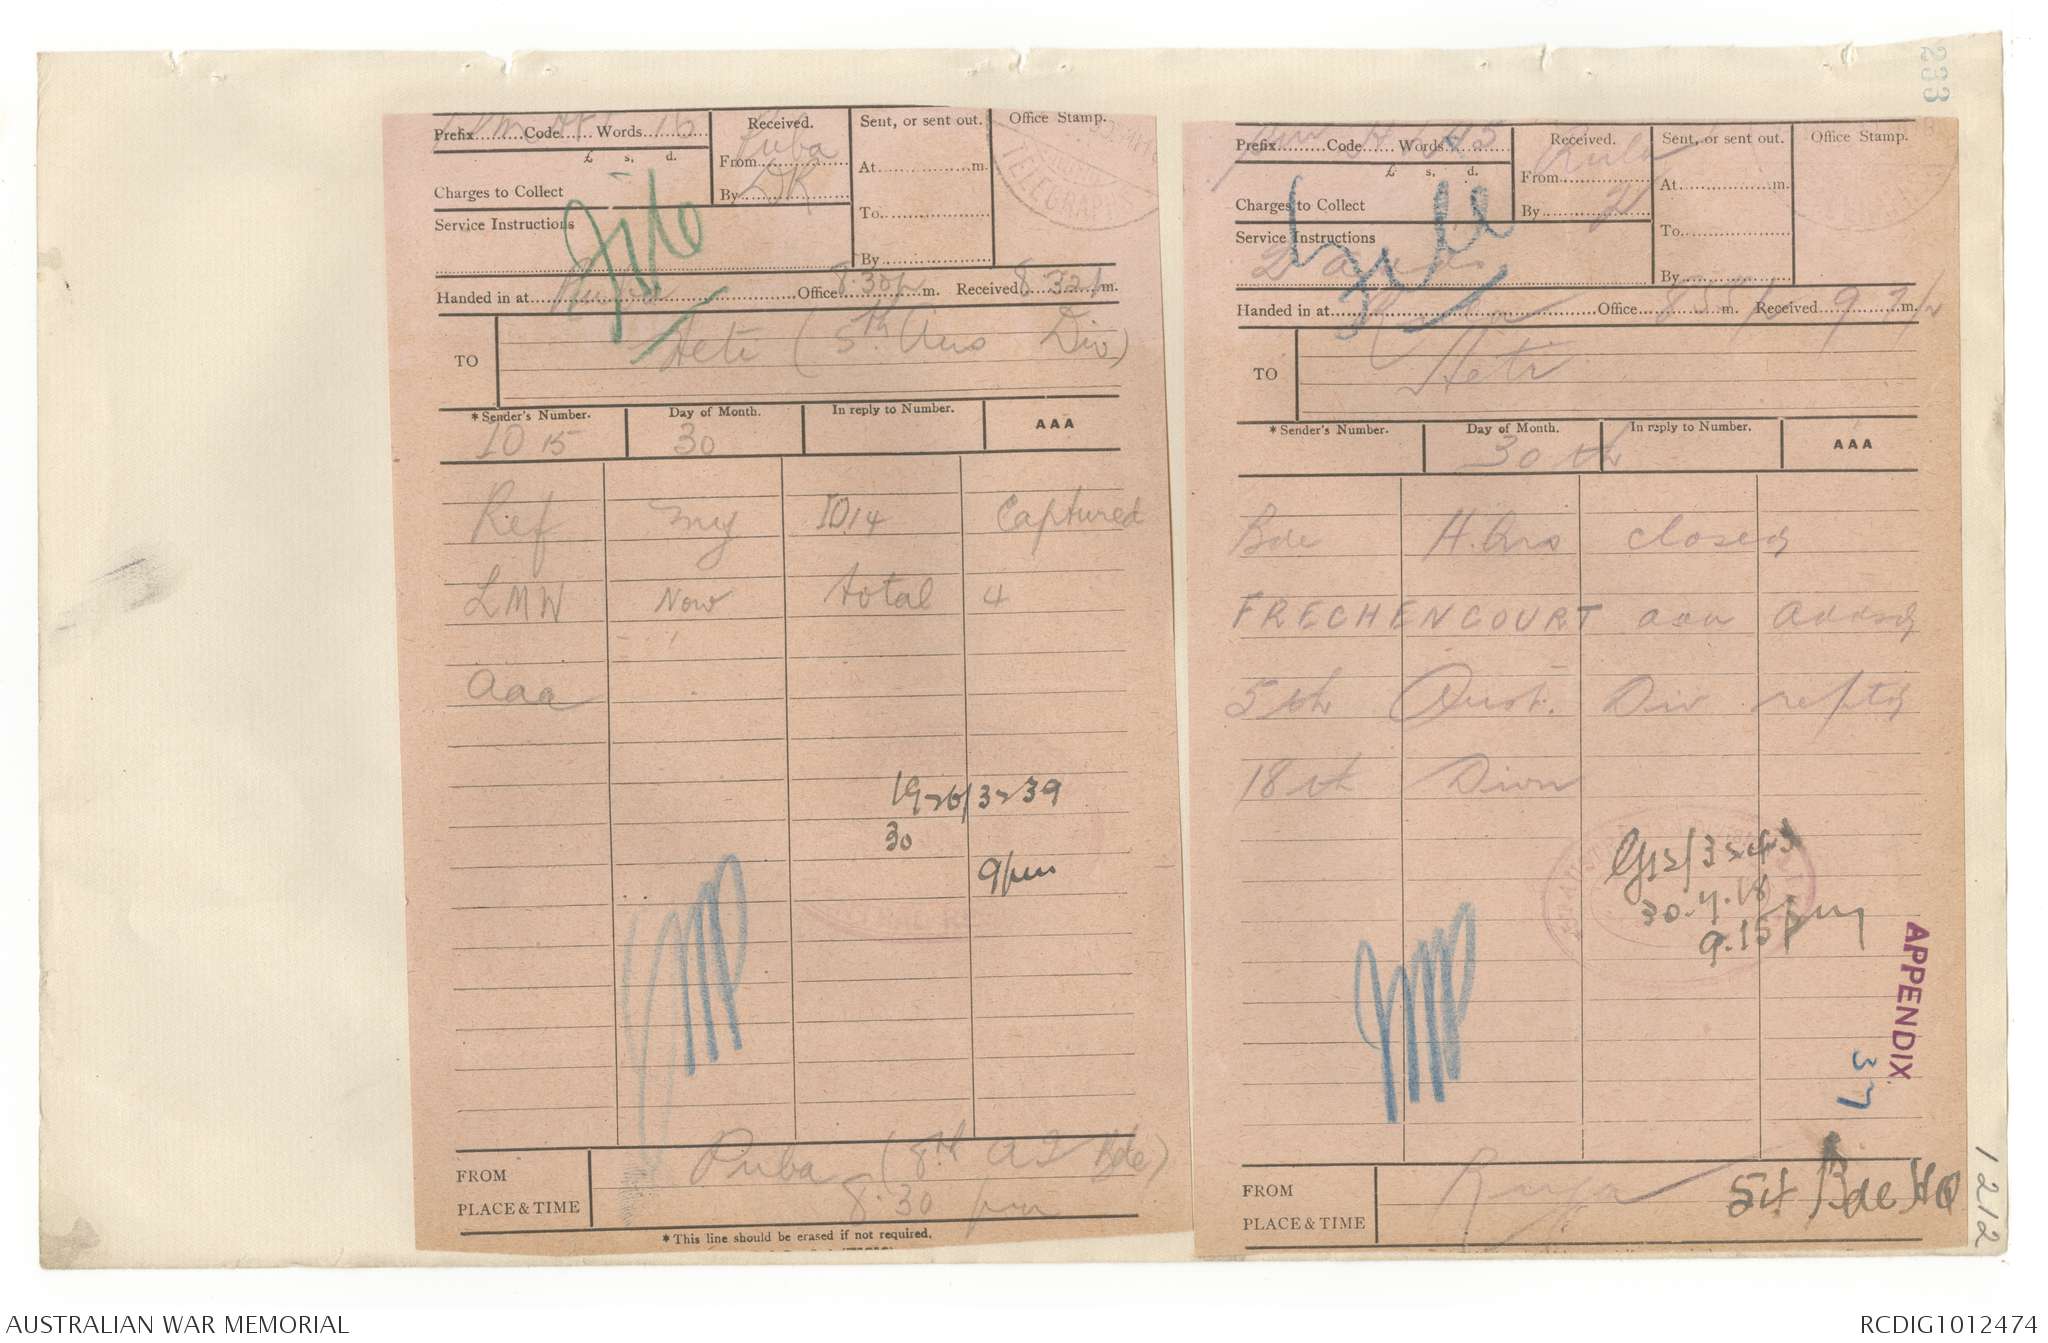 Prefix.........Code......Words 15
£ s. d.
Charges to Collect
Service Instructions
Received.
From Puba
By DK
Sent, or sent out.
At..................m.
To.
By
Office Stamp.
TELEGRAPHS
File
Handed in at Puba Office 8.30p m. Received 8.32p m.
TO Heti (5th Aus Div)
* Sender's Number. Day of Month. In reply to Number. AAA
IO 15 30
Ref my IO14 Captured
LMW Now total 4
aaa
30
9pm
FROM Puba (8th A I Bde)
PLACE & TIME 8.30 pm
* This line should be erased if not required.
233
Prefix.........Code......Words
£ s. d.
Charges to Collect
Service Instructions
Received.
From
By
Sent, or sent out.
At..................m.
To.
By
Office Stamp.
File
Handed in at Office m. Received m.
TO Heti
* Sender's Number. Day of Month. In reply to Number. AAA
30th
Bde H.Qrs closed
FRECHENCOURT aaa addsd
5th Aust. Div reptd
18th Divn
9.15pm
APPENDIX
37
FROM
PLACE & TIME
Bde HQ
1212
AUSTRALIAN WAR MEMORIAL
RCDIG1012474